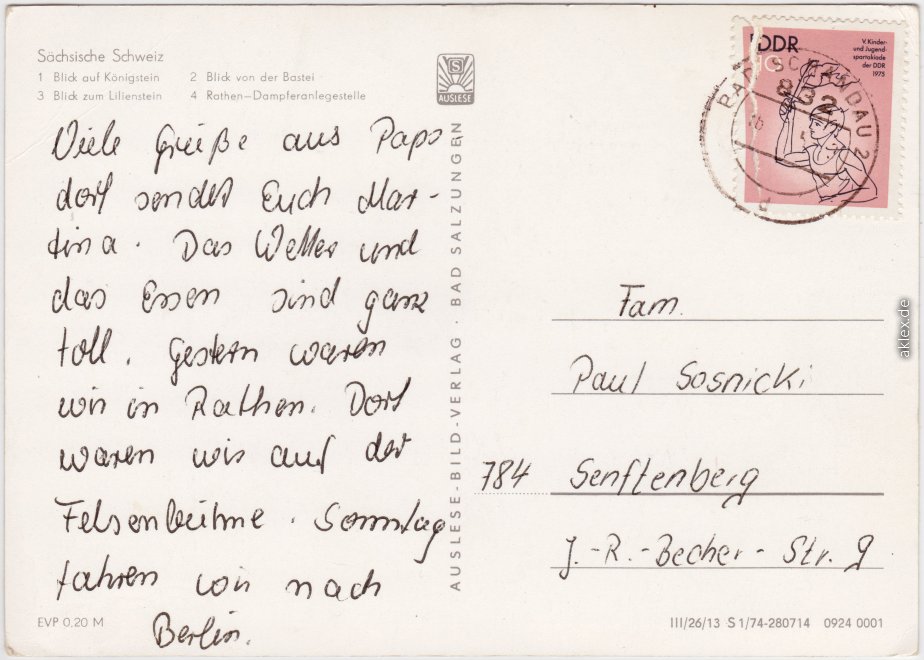 Sächsische Schweiz
1 Blick auf Königstein 2 Blick von der Bastei
3 Blick zum Lilienstein 4 Rathen-Dampferanlegestelle
S
AUSLESE
DDR
10
V. Kinder-
und Jugend-
spartakiade
der DDR
1975
BAD SCHANDAU 2
832
d
Viele Grüße aus Paps
dorf sendet Euch Mar-
tina. Das Wetter und
das Essen sind ganz
toll. Gestern waren
wir in Rathen. Dort
waren wir auf der
Felsenbühne. Sonntag
fahren wir nach
Berlin.
AUSLESE-BILD-VERLAG · BAD SALZUNGEN
Fam.
Paul Sosnicki
784 Senftenberg
J.-R.-Becher-Str. 9
EVP 0,20 M
III/26/13 S 1/74-280714 0924 0001
aklex.de